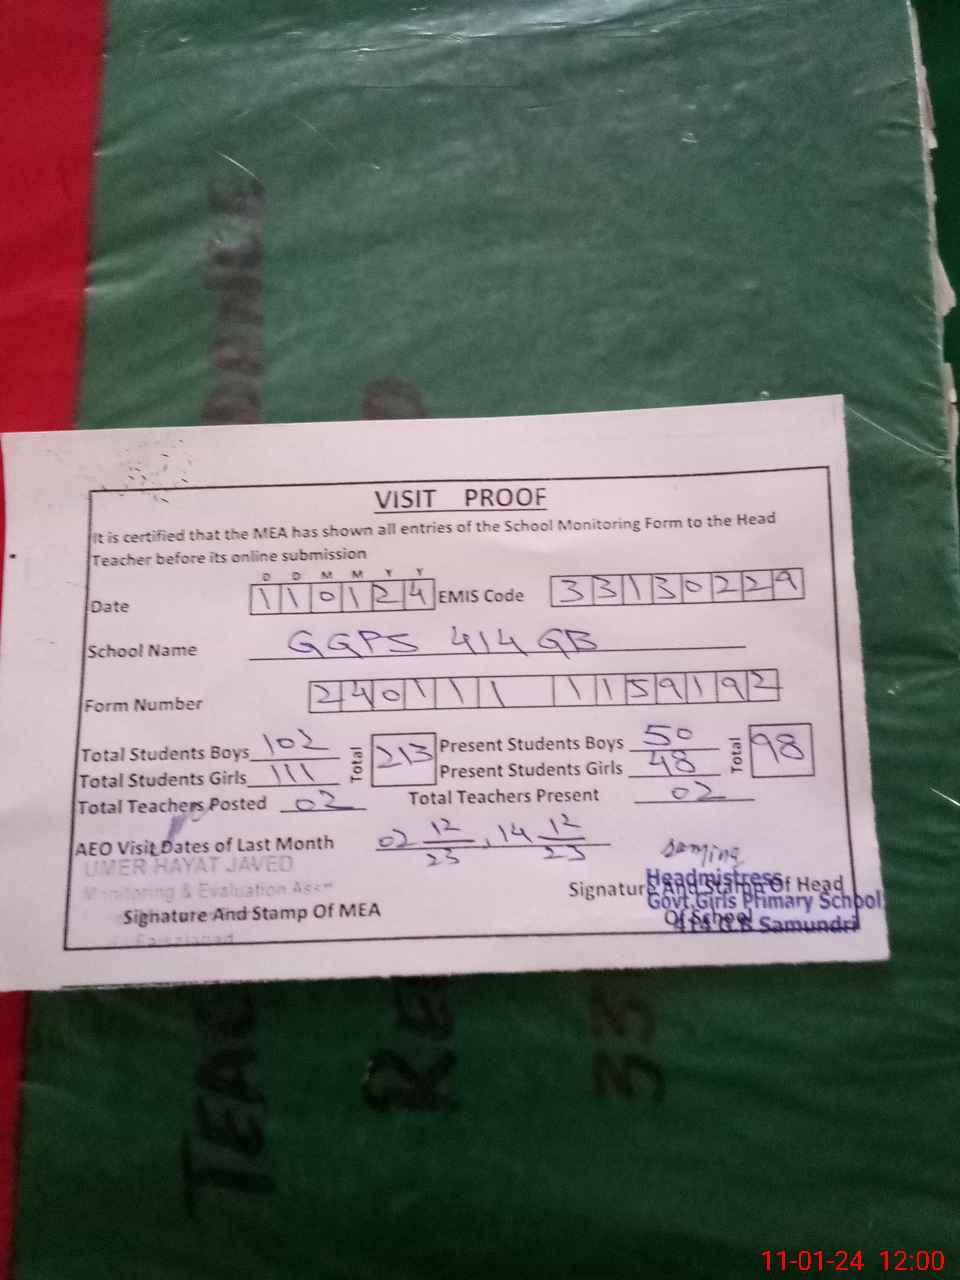 VISIT PROOF
It is certified that the MEA has shown all entries of the School Monitoring Form to the Head
Teacher before its online submission
D D M M Y Y
Date 110124 EMIS Code 33130229
School Name GGPS 414 GB
Form Number 240111 1159192
Total Students Boys 102 Total 213 Present Students Boys 50 Total 98
Total Students Girls 111 Present Students Girls 48
Total Teachers Posted 02 Total Teachers Present 02
AEO Visit Dates of Last Month 02 12/23, 14 12/23
UMER HAYAT JAVED
Monitoring & Evaluation Asstt
Signature And Stamp Of MEA
Faisalabad
Signature And Stamp Of Head
Of School
Headmistress
Govt.Girls Primary School
414 G.B Samundri
TEAC
RE
33
11-01-24 12:00